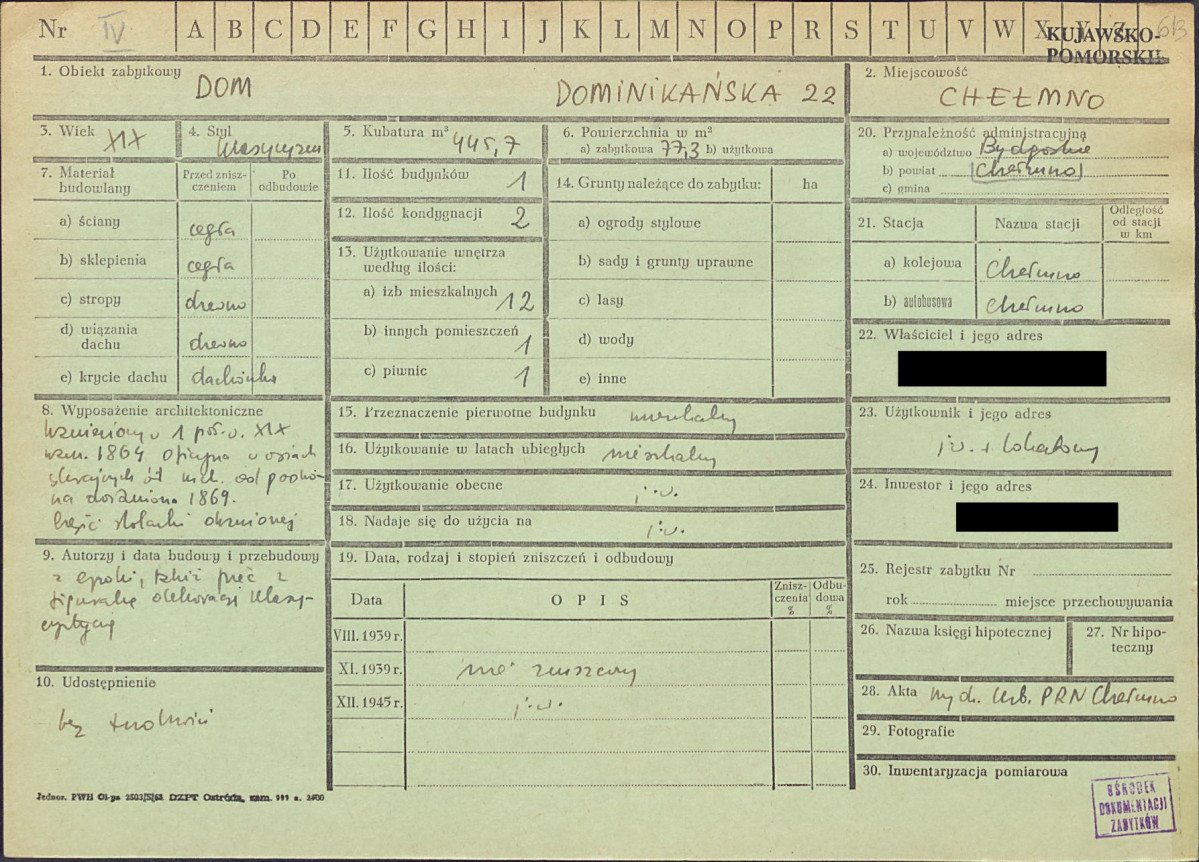 Nr IV A B C D E F G H I J K L M N O P R S T U V W X Y Z 613
KUJAWSKO-
POMORSKIE
1. Obiekt zabytkowy
DOM DOMINIKAŃSKA 22
2. Miejscowość
CHEŁMNO
3. Wiek
XIX
4. Styl
klasycyzm
5. Kubatura m³ 445,7
6. Powierzchnia w m²
a) zabytkowa 77,3 b) użytkowa
7. Materiał
budowlany
Przed znisz-
czeniem
Po
odbudowie
a) ściany cegła
b) sklepienia cegła
c) stropy drewno
d) wiązania
dachu drewno
e) krycie dachu dachówka
8. Wyposażenie architektoniczne
Wzniesiony w 1 poł. w. XIX
wzn. 1864 Oficyna w osiach
skrajnych od podwó-
na 1869.
Część stolarki okiennej
9. Autorzy i data budowy i przebudowy
z epoki, także piec z
figuralną dekoracją klasy-
cystyczną
10. Udostępnienie
bez trudności
11. Ilość budynków 1
12. Ilość kondygnacji 2
13. Użytkowanie wnętrza
według ilości:
a) izb mieszkalnych 12
b) innych pomieszczeń 1
c) piwnic 1
14. Grunty należące do zabytku: ha
a) ogrody stylowe
b) sady i grunty uprawne
c) lasy
d) wody
e) inne
15. Przeznaczenie pierwotne budynku mieszkalny
16. Użytkowanie w latach ubiegłych mieszkalny
17. Użytkowanie obecne j.w.
18. Nadaje się do użycia na j.w.
19. Data, rodzaj i stopień zniszczeń i odbudowy
Data
O P I S
Znisz-
czenia
%
Odbu-
dowa
%
VIII. 1939 r.
XI. 1939 r. nie zniszczony
XII. 1945 r. j.w.
20. Przynależność administracyjna
a) województwo Bydgoskie
b) powiat Chełmno
c) gmina
21. Stacja
Nazwa stacji
Odległość
od stacji
w km
a) kolejowa Chełmno
b) autobusowa Chełmno
22. Właściciel i jego adres
23. Użytkownik i jego adres
j.w. + lokatorzy
24. Inwestor i jego adres
25. Rejestr zabytku Nr
rok miejsce przechowywania
26. Nazwa księgi hipotecznej
27. Nr hipo-
teczny
28. Akta PRN Chełmno
29. Fotografie
30. Inwentaryzacja pomiarowa
OŚRODEK
DOKUMENTACJI
ZABYTKÓW